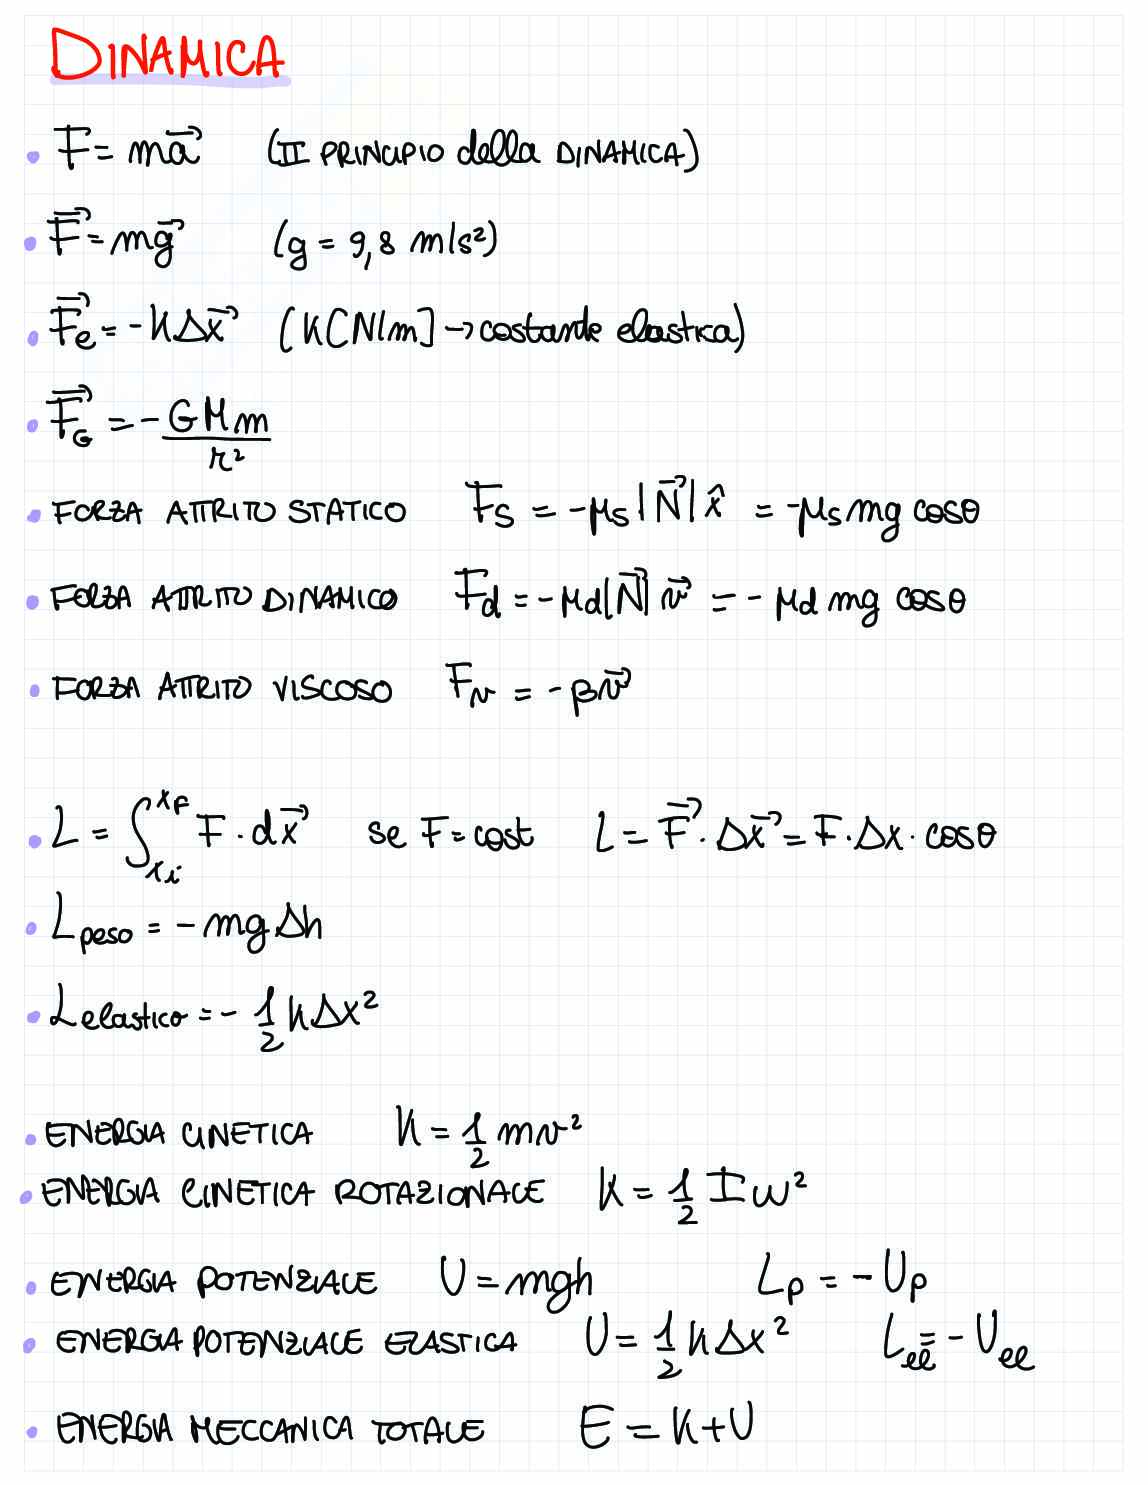 DINAMICA
• F = ma⃗ (II PRINCIPIO della DINAMICA)
• F⃗ = mg⃗ (g = 9,8 m/s²)
• F⃗e = -KΔx⃗ (K[N/m] → costante elastica)
• F⃗G = - GMm / r²
• FORZA ATTRITO STATICO Fs = -μs |N⃗| x̂ = -μs mg cosθ
• FORZA ATTRITO DINAMICO Fd = -μd |N⃗| v⃗ = -μd mg cosθ
• FORZA ATTRITO VISCOSO Fv = -βv⃗
• L = ∫xi^xF F · dx⃗ se F = cost L = F⃗ · Δx⃗ = F · Δx · cosθ
• Lpeso = -mgΔh
• Lelastico = - 1/2 KΔx²
• ENERGIA CINETICA K = 1/2 mv²
• ENERGIA CINETICA ROTAZIONALE K = 1/2 I ω²
• ENERGIA POTENZIALE U = mgh Lp = -Up
• ENERGIA POTENZIALE ELASTICA U = 1/2 KΔx² Lel = -Uel
• ENERGIA MECCANICA TOTALE E = K + U